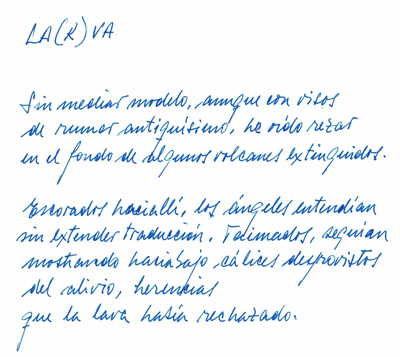 LA(R)VA
Sin mediar modelo, aunque con visos
de rumor antiquísimo, he oído rezar
en el fondo de algunos volcanes extinguidos.
Escorados haciallí, los ángeles entendían
sin extender traducción. Taimados, seguían
mostrando haciabajo cálices desprovistos
del alivio, herencias
que la lava había rechazado.